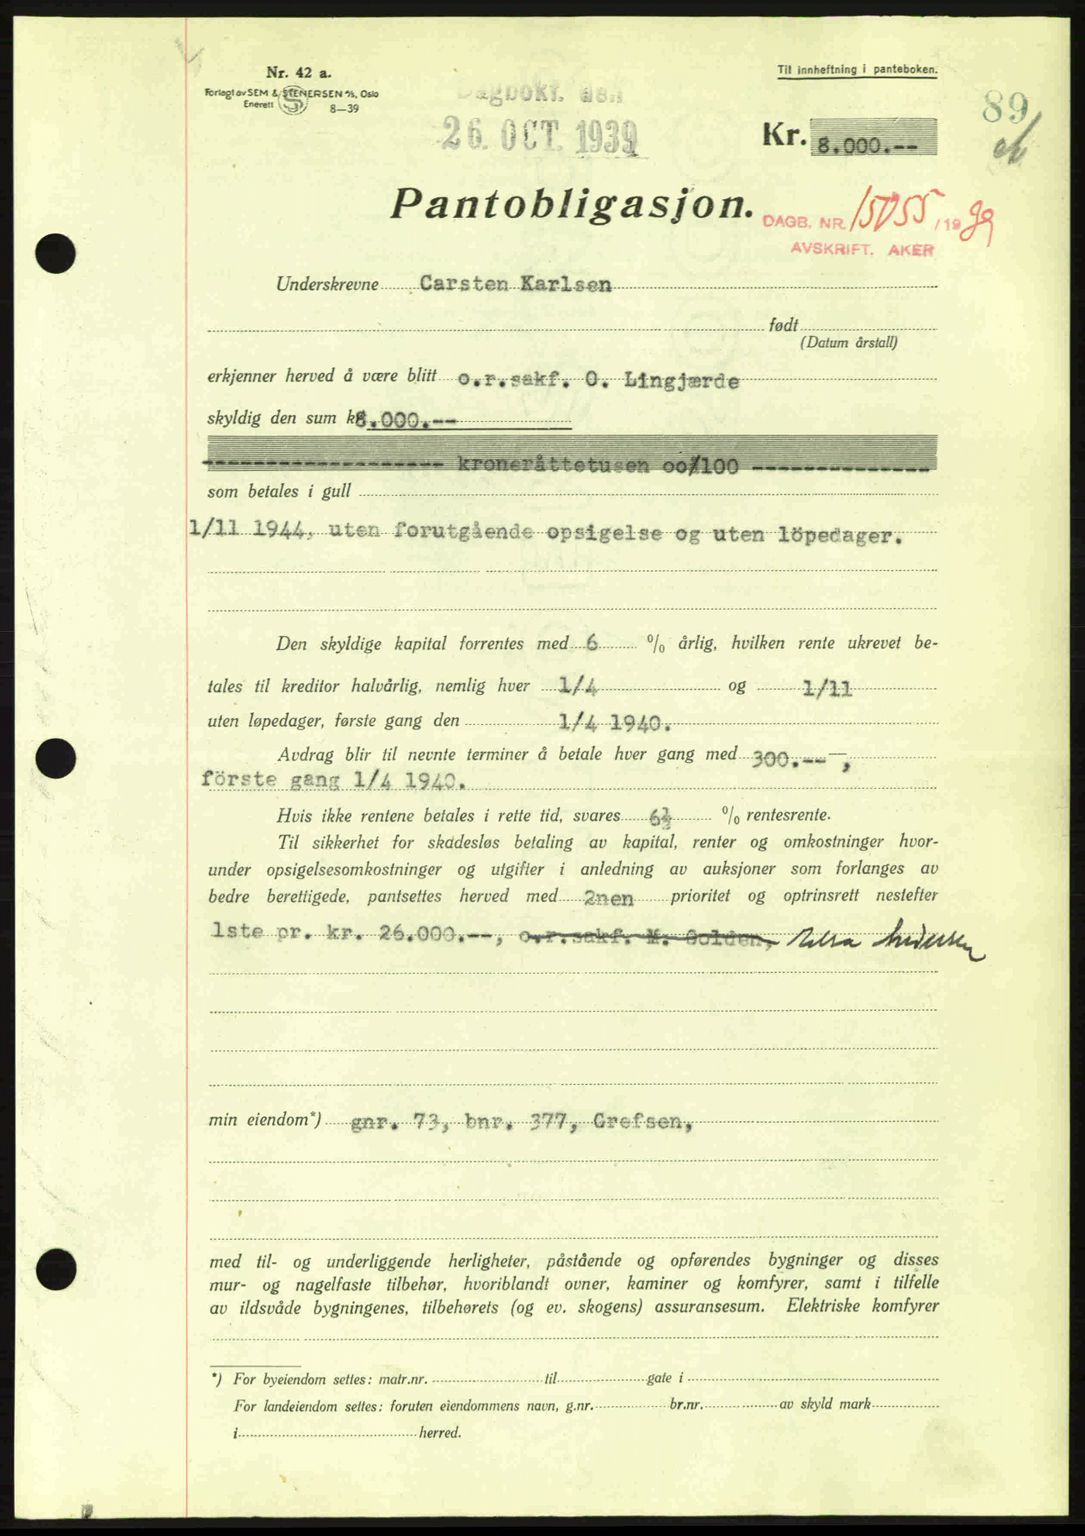 Nr. 42 a.
Til innheftning i panteboken.
Forlagt av SEM & STENERSEN A/S, Oslo
Enerett S 8—39
Dagbokf. den
26. OCT. 1939
Kr. 8.000.--
89
Pantobligasjon.
DAGB. NR. 15055 /19 39
AVSKRIFT. AKER
Underskrevne Carsten Karlsen
født
(Datum årstall)
erkjenner herved å være blitt o.r.sakf. O. Lingjærde
skyldig den sum kr 8.000.--
------------------- kroneråttetusen oo/100 --------------
som betales i gull
1/11 1944, uten forutgående opsigelse og uten löpedager.
Den skyldige kapital forrentes med 6 % årlig, hvilken rente ukrevet be-
tales til kreditor halvårlig, nemlig hver 1/4 og 1/11
uten løpedager, første gang den 1/4 1940.
Avdrag blir til nevnte terminer å betale hver gang med 300.-- ,
förste gang 1/4 1940.
Hvis ikke rentene betales i rette tid, svares 6½ % rentesrente.
Til sikkerhet for skadesløs betaling av kapital, renter og omkostninger hvor-
under opsigelsesomkostninger og utgifter i anledning av auksjoner som forlanges av
bedre berettigede, pantsettes herved med 2nen prioritet og optrinsrett nestefter
1ste pr. kr. 26.000.--, o.r.sakf. M. Golden, Andersen
min eiendom*) gnr. 73, bnr. 377, Grefsen,
med til- og underliggende herligheter, påstående og opførendes bygninger og disses
mur- og nagelfaste tilbehør, hvoriblandt ovner, kaminer og komfyrer, samt i tilfelle
av ildsvåde bygningenes, tilbehørets (og ev. skogens) assuransesum. Elektriske komfyrer
*) For byeiendom settes: matr.nr. til gate i
For landeiendom settes: foruten eiendommens navn, g.nr. br.nr. av skyld mark
i herred.